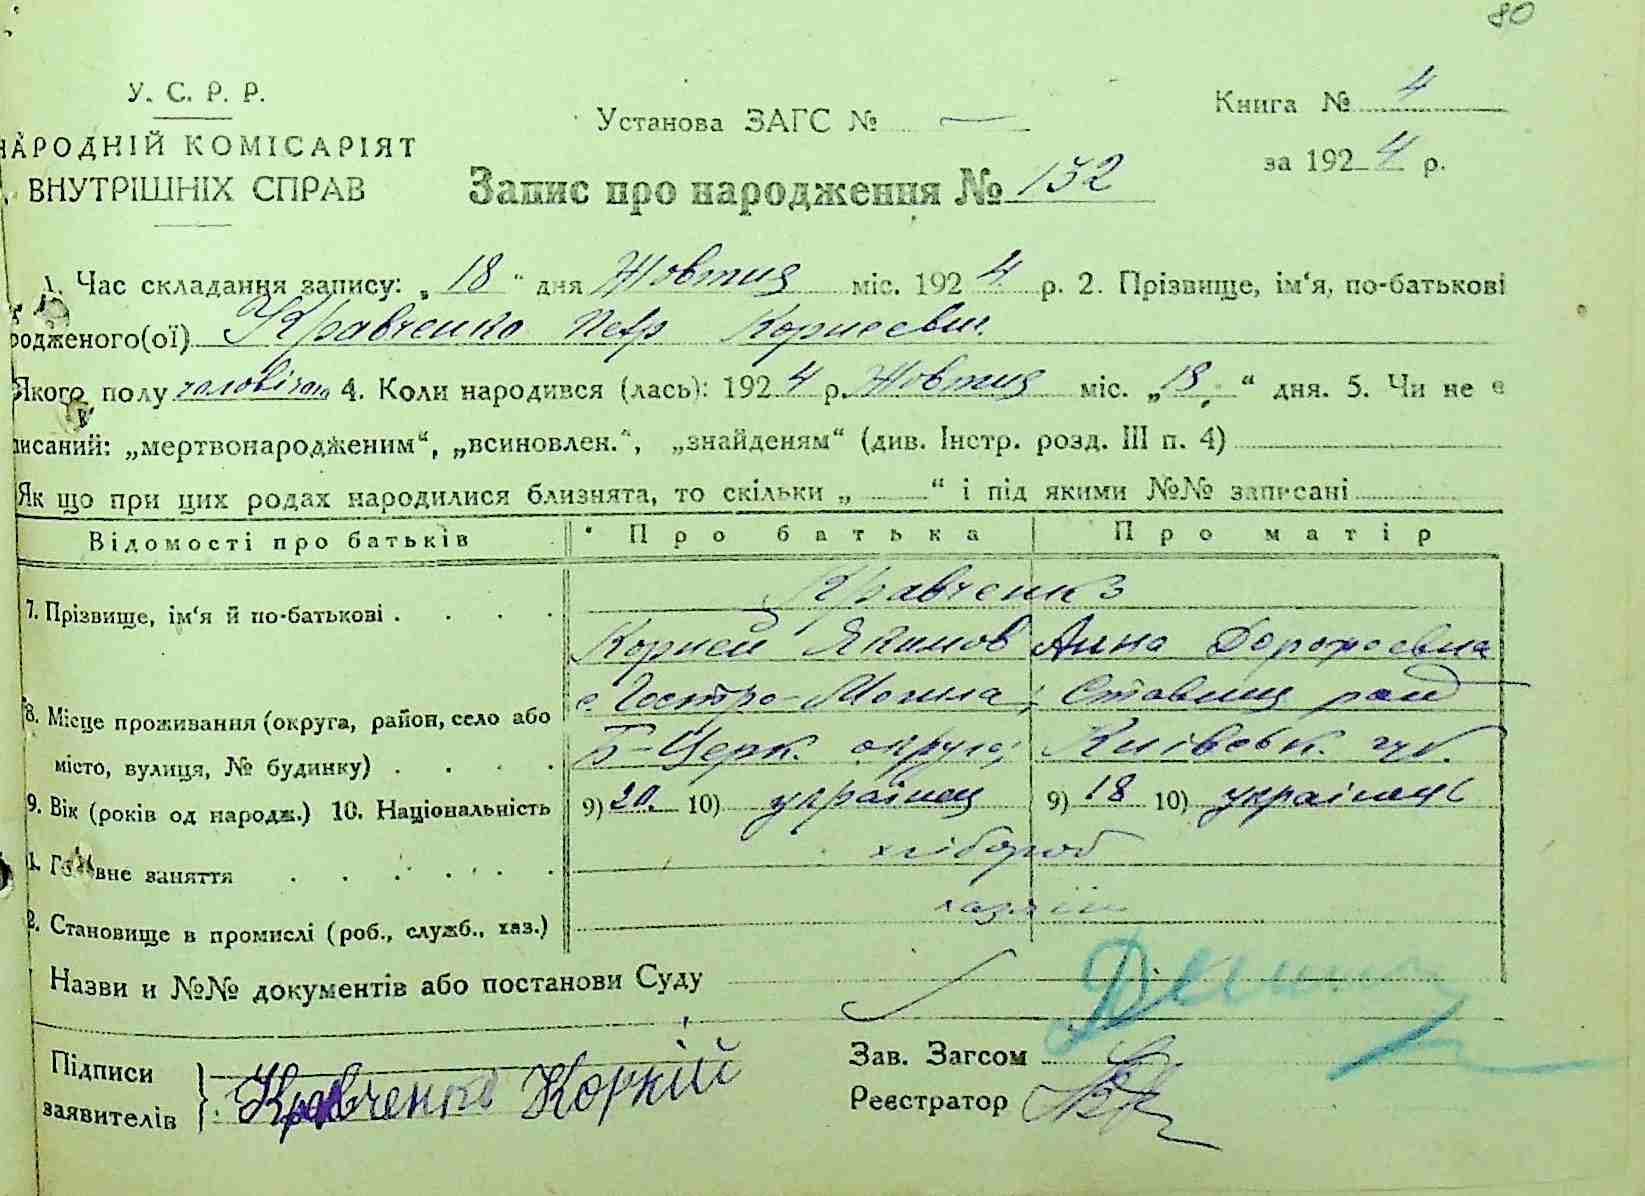 80
У. С. Р. Р.
НАРОДНІЙ КОМІСАРІЯТ
ВНУТРІШНІХ СПРАВ
Установа ЗАГС № —
Книга № 4
за 1924 р.
Запис про народження № 132
1. Час складання запису: „18“ дня Жовтня міс. 1924 р. 2. Прізвище, ім‘я, по-батькові
родженого(ої) Кравченко Петр Корнеевич
Якого полу чоловічого 4. Коли народився (лась): 1924 р. Жовтня міс. „18“ дня. 5. Чи не є
писаний: „мертвонародженим“, „всиновлен.“, „знайденям“ (див. Інстр. розд. III п. 4)
Як що при цих родах народилися близнята, то скільки „ “ і під якими №№ записані
Відомості про батьків Про батька Про матір
7. Прізвище, ім‘я й по-батькові . . . . Кравченко
Корней Якимов Анна Дорофеевна
8. Місце проживання (округа, район, село або с. Гостра-Могила, Ставищ район
місто, вулиця, № будинку) . . . . Б-Церк. округа, Київськ. губ.
9. Вік (років од народж.) 10. Національність 9) 20. 10) українец 9) 18 10) українець
1. Головне заняття . . . . . . хлібороб
2. Становище в промислі (роб., служб., хаз.)
Назви и №№ документів або постанови Суду
Підписи
заявителів } Кравченко Корній
Зав. Загсом
Реєстратор